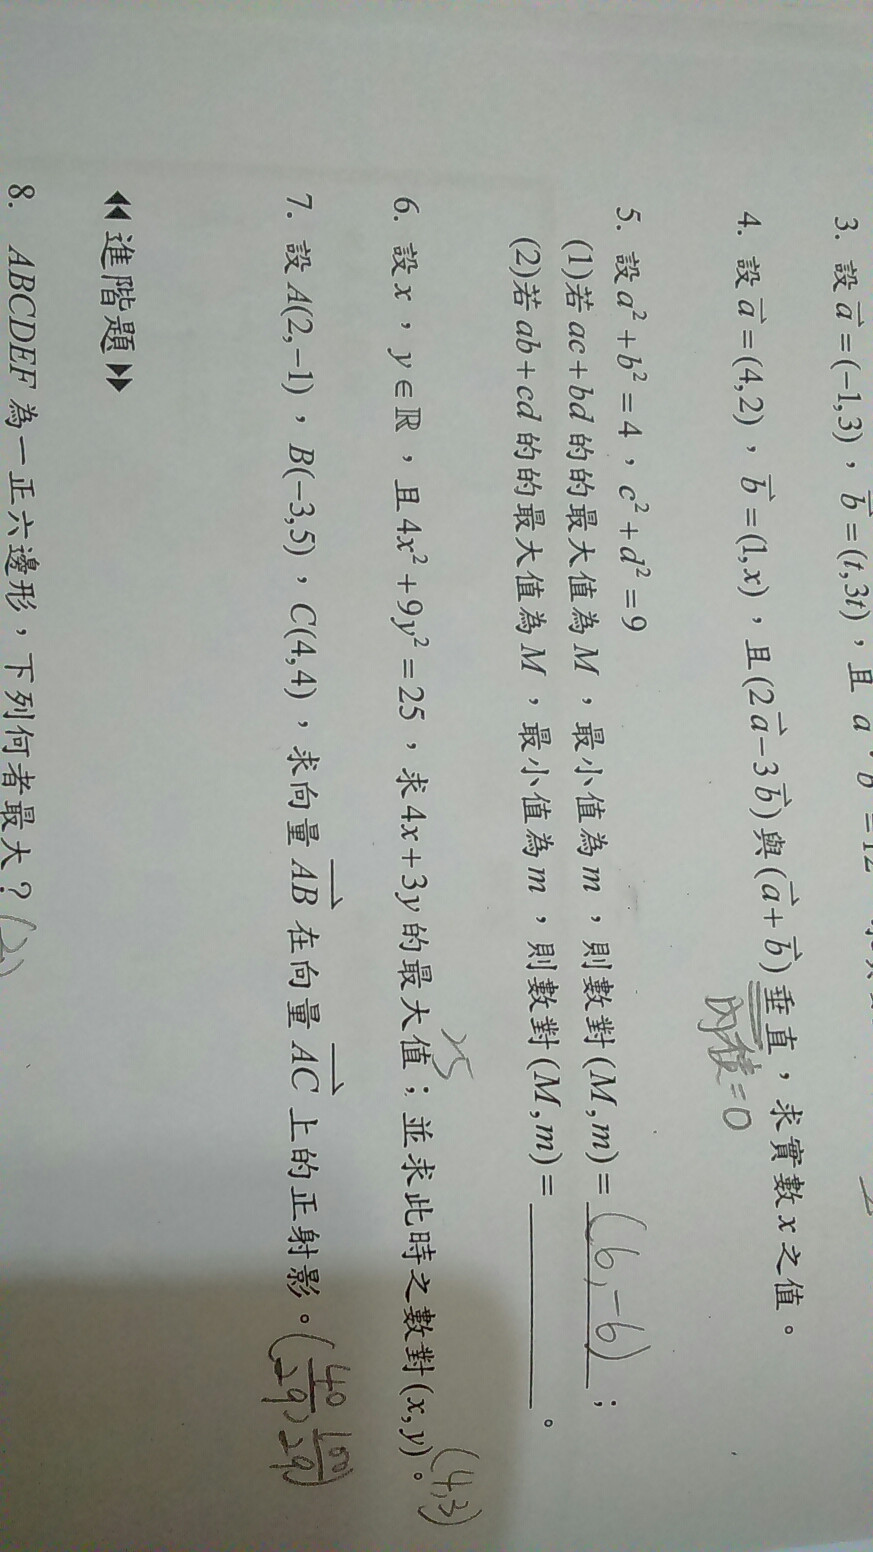 3. 設 a = (-1,3)，b = (t,3t)，且 a · b = 12
4. 設 a = (4,2)，b = (1,x)，且 (2a-3b) 與 (a+b) 垂直，求實數 x 之值。
內積=0
5. 設 a² + b² = 4，c² + d² = 9
(1)若 ac+bd 的的最大值為 M，最小值為 m，則數對 (M,m) = (6,-6)；
(2)若 ab+cd 的的最大值為 M，最小值為 m，則數對 (M,m) = ________。
6. 設 x，y ∈ ℝ，且 4x² + 9y² = 25，求 4x+3y 的最大值；並求此時之數對 (x,y)。(4,3)
7. 設 A(2,-1)，B(-3,5)，C(4,4)，求向量 AB 在向量 AC 上的正射影。(40/29, 100/29)
◀◀進階題▶▶
8. ABCDEF 為一正六邊形，下列何者最大？